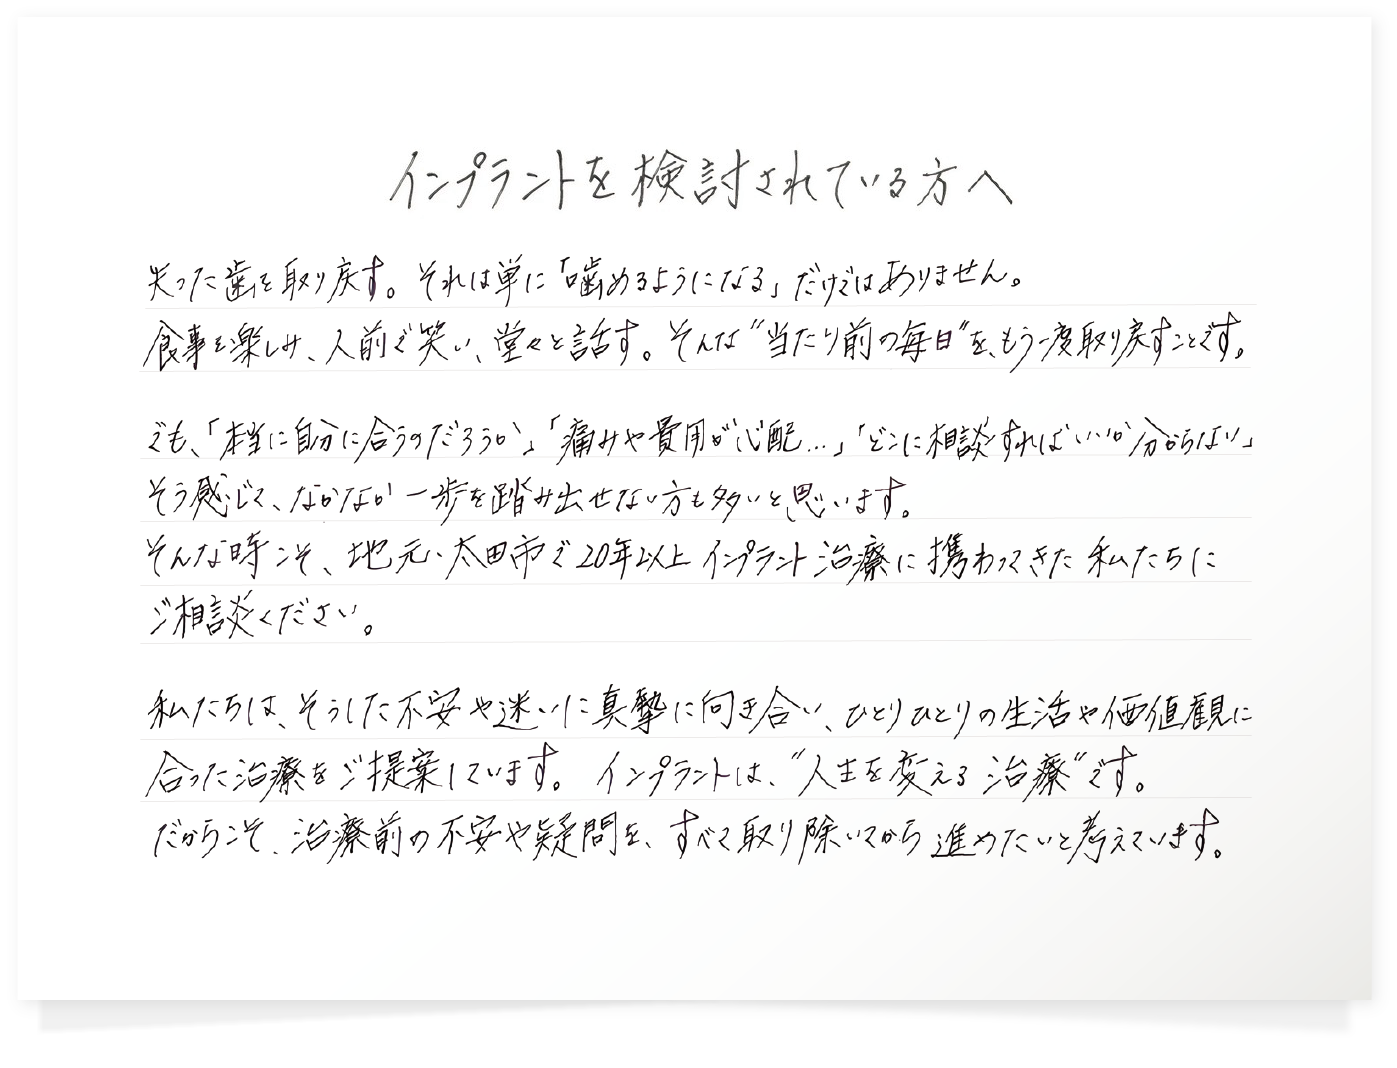 インプラントを検討されている方へ
失った歯を取り戻す。それは単に「噛めるようになる」だけではありません。
食事を楽しみ、人前で笑い、堂々と話す。そんな“当たり前の毎日”を、もう一度取り戻すことです。
でも、「本当に自分に合うのだろうか」「痛みや費用が心配…」「どこに相談すればいいか分からない」
そう感じて、なかなか一歩を踏み出せない方も多いと思います。
そんな時こそ、地元・太田市で20年以上インプラント治療に携わってきた私たちに
ご相談ください。
私たちは、そうした不安や迷いに真摯に向き合い、ひとりひとりの生活や価値観に
合った治療をご提案しています。インプラントは、“人生を変える治療”です。
だからこそ、治療前の不安や疑問を、すべて取り除いてから進めたいと考えています。